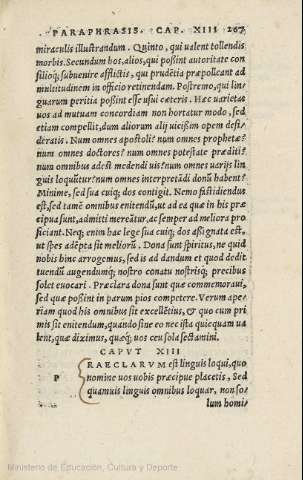 PARAPHRASIS. CAP. XIII 267
miraculis illustrandum. Quinto, qui ualent tollendis
morbis. Secundum hos, alios, qui possint autoritate con
silioq; subuenire afflictis, qui prudētia præpolleant ad
multitudinem in officio retinendam. Postremo, qui lin
guarum peritia possint esse usui cæteris. Hæc uarietas
uos ad mutuam concordiam non hortatur modo, sed
etiam compellit, dum aliorum alij uicißim opem desi-
deratis. Num omnes apostoli? num omnes prophetæ?
num omnes doctores? num omnes potestate præditi?
num omnibus adest medendi uis? num omnes uarijs lin
guis loquūtur? num omnes interpretādi donū habent?
Minime, sed sua cuiq; dos contigit. Nemo fastidiendus
est, sed tamē omnibus enitendū, ut ad ea quæ in his præ
cipua sunt, admitti mereātur, ac semper ad meliora pro
ficiant. Neq; enim hac lege sua cuiq; dos aßignata est,
ut spes adēpta sit meliorū. Dona sunt spiritus, ne quid
nobis hinc arrogemus, sed is ad dandum et quod dedit
tuendū augendumq; nostro conatu nostrisq; precibus
solet euocari. Præclara dona sunt quæ commemoraui,
sed quæ poßint in parum pios competere. Verum ape-
riam quod his omnibus sit excellētius, & quo cum pri
mis sit enitendum, quando sine eo nec ista quicquam ua
lent, quæ diximus, quæq; uos ceu sola sectamini.
CAPVT XIII
P RAECLARVM est linguis loqui, quo
nomine uos uobis præcipue placetis, Sed
quamuis linguis omnibus loquar, non so-
lum homi
Ministerio de Educación, Cultura y Deporte